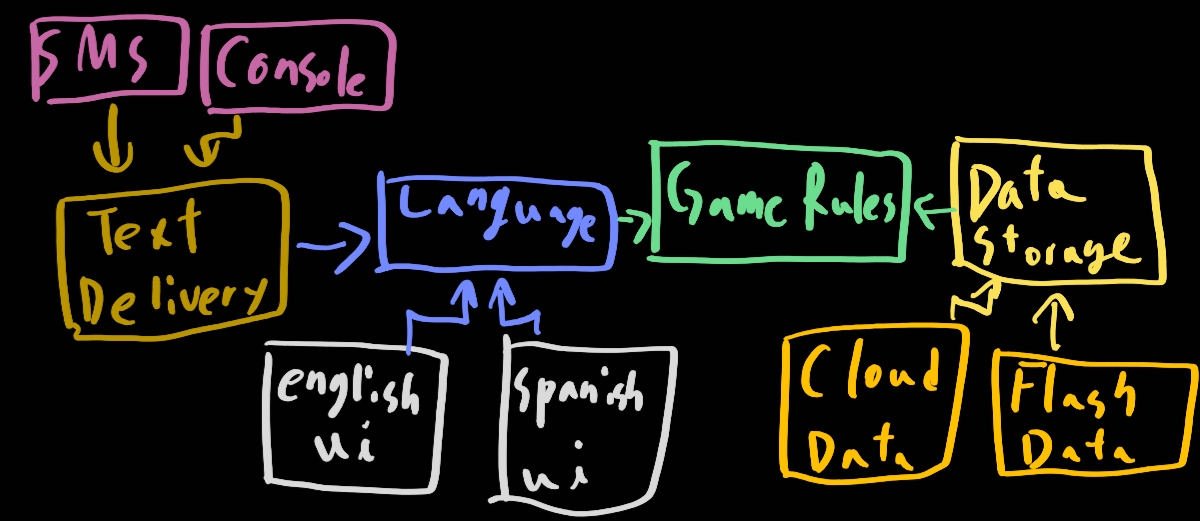 SMS
Console
Text
Delivery
Language
Game Rules
Data
Storage
english
ui
spanish
ui
Cloud
Data
Flash
Data